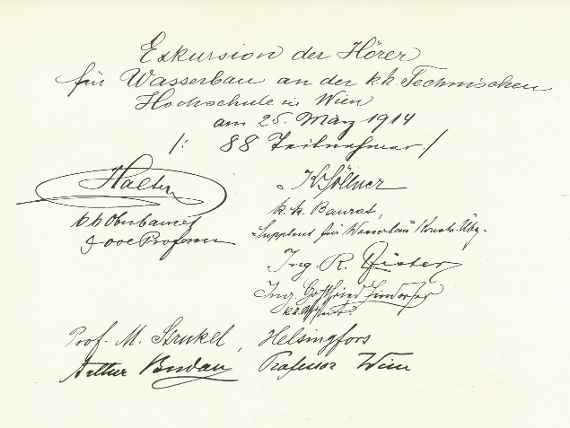 Exkursion der Hörer
für Wasserbau an der k.k. Technischen
Hochschule in Wien
am 25. März 1914
/: 88 Teilnehmer :/
Halter
k.k. Oberbaurat
o.ö. Professor
K. Söllner
k.k. Baurat,
Supplent für Wasserbau
Ing. R.
Ing. Gottfried
Prof. M. Strukel, Helsingfors
Arthur Budau Professor Wien